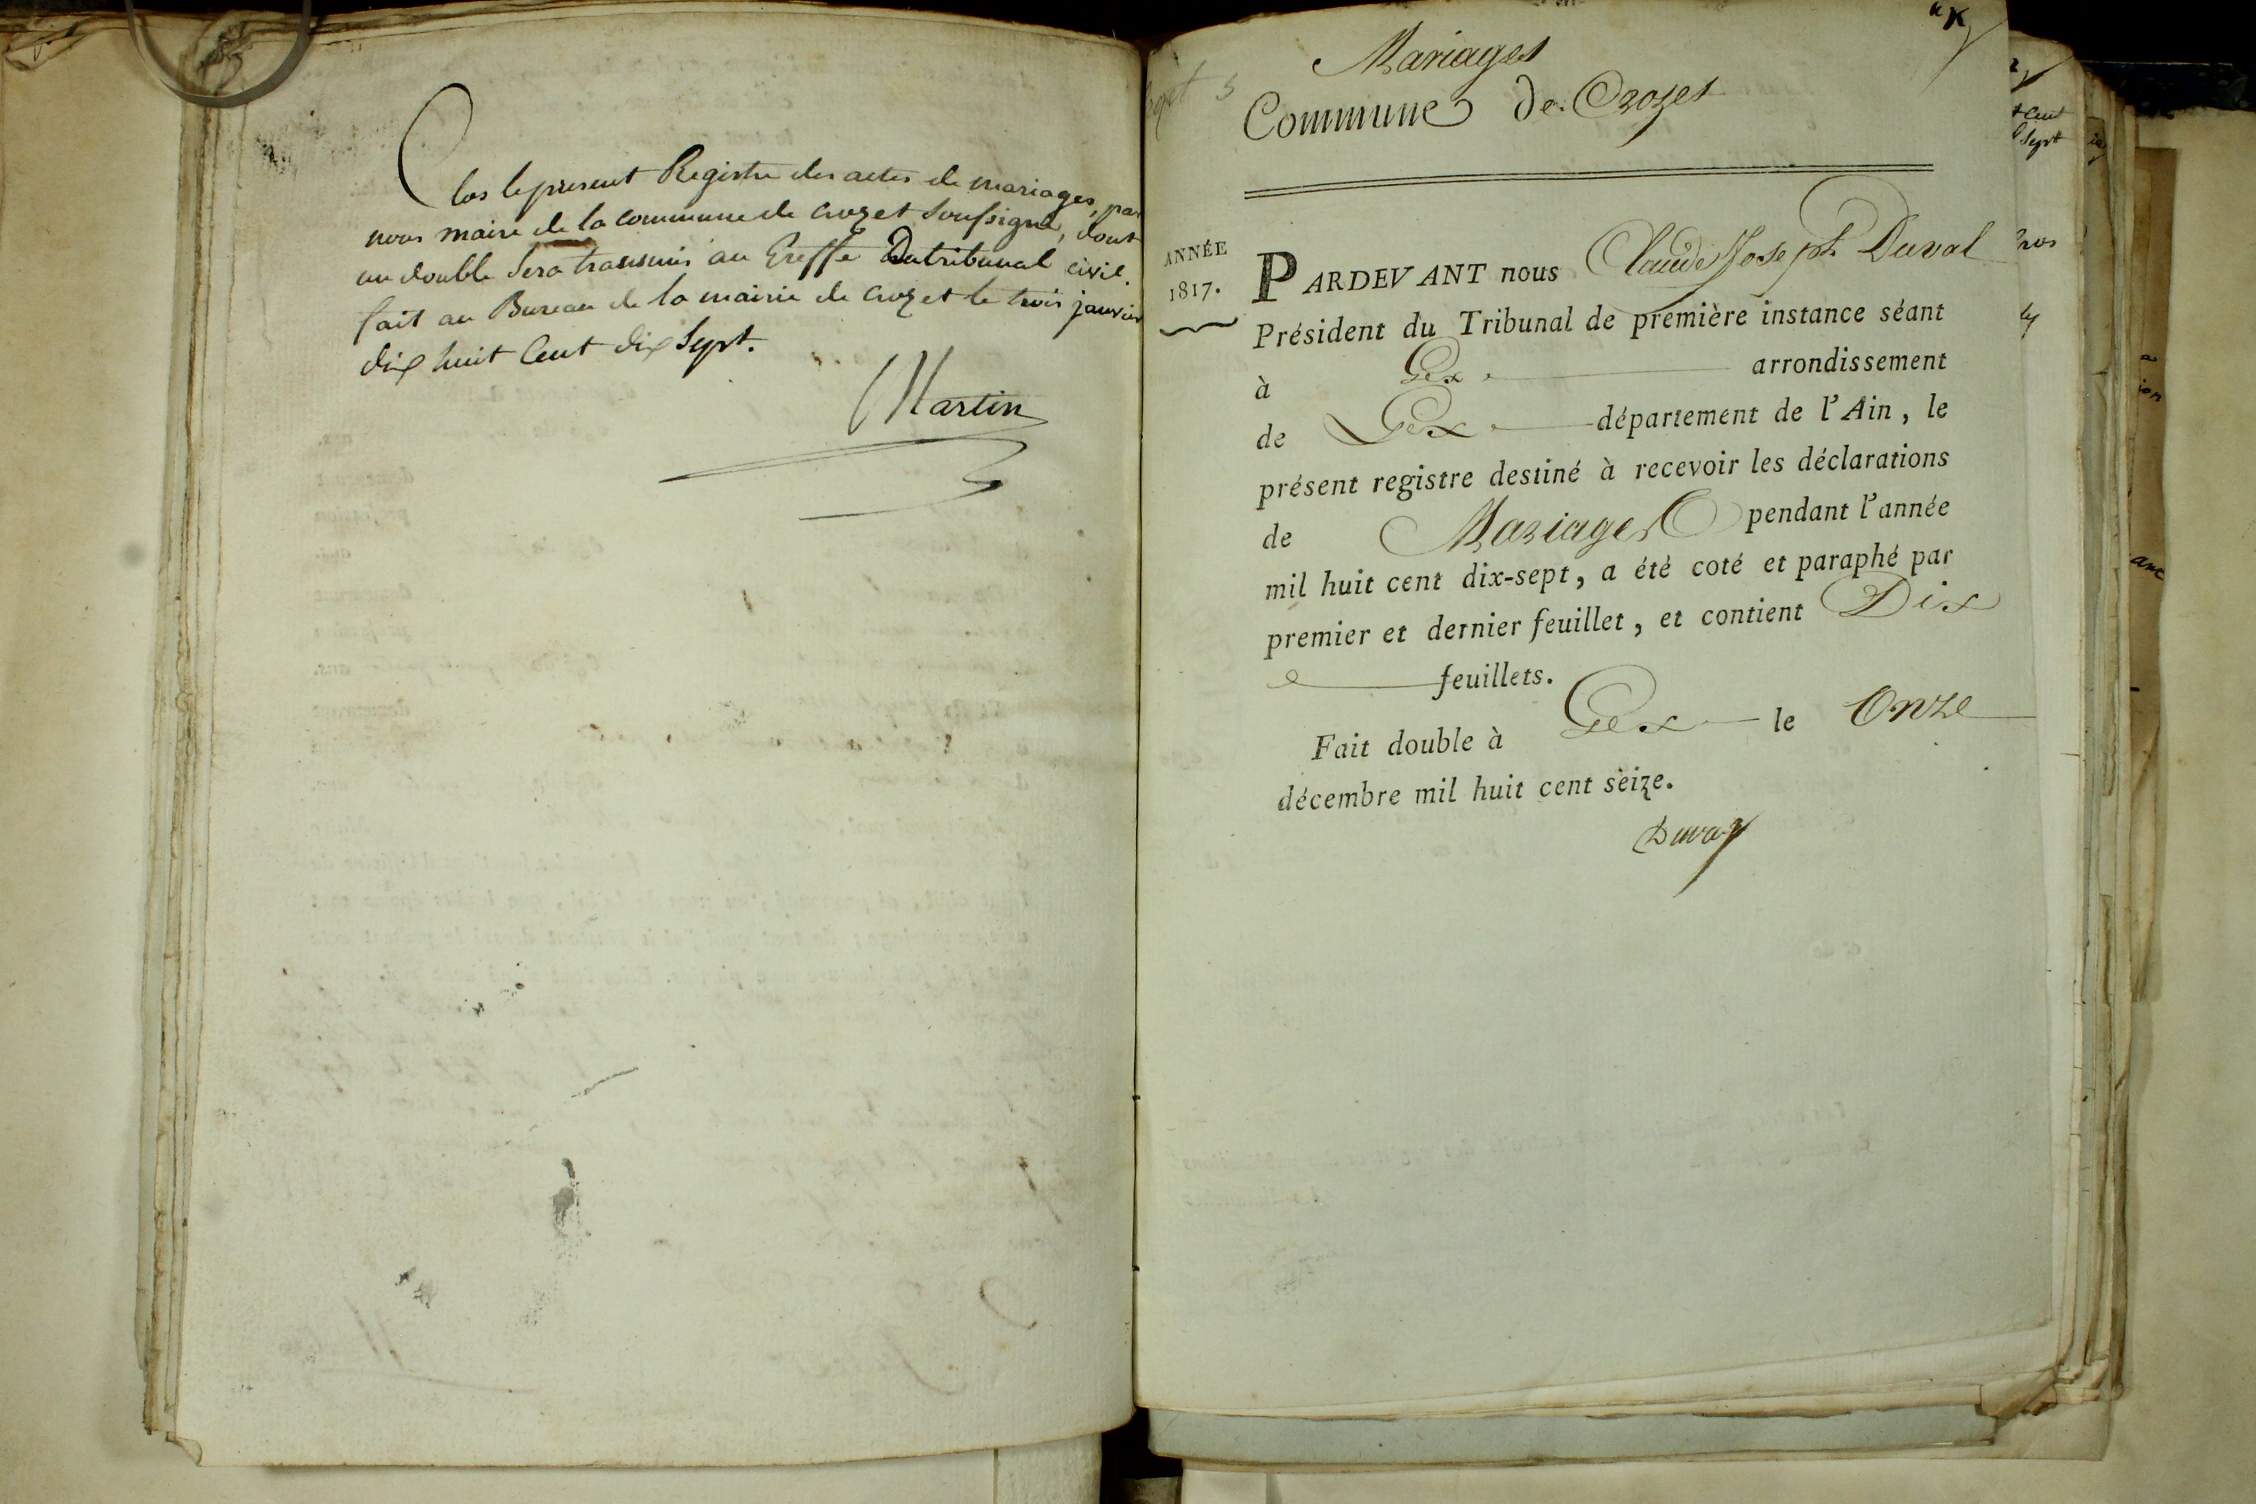 Clos le present Registre des actes de mariages, par
nous maire de la commune de crozet soussigné, dont
un double sera transmis au Greffe Du tribunal civil.
fait au Bureau de la mairie de crozet le trois janvier
dix huit Cent dix Sept.
Martin
Mariages
Commune de Crozet
ANNÉE
1817.
PARDEVANT nous Claude Joseph Duval
Président du Tribunal de première instance séant
à Gex arrondissement
de Gex département de l'Ain, le
présent registre destiné à recevoir les déclarations
de Mariages pendant l'année
mil huit cent dix-sept, a été coté et paraphé par
premier et dernier feuillet, et contient Dix
feuillets.
Fait double à Gex le Onze
décembre mil huit cent seize.
Duval